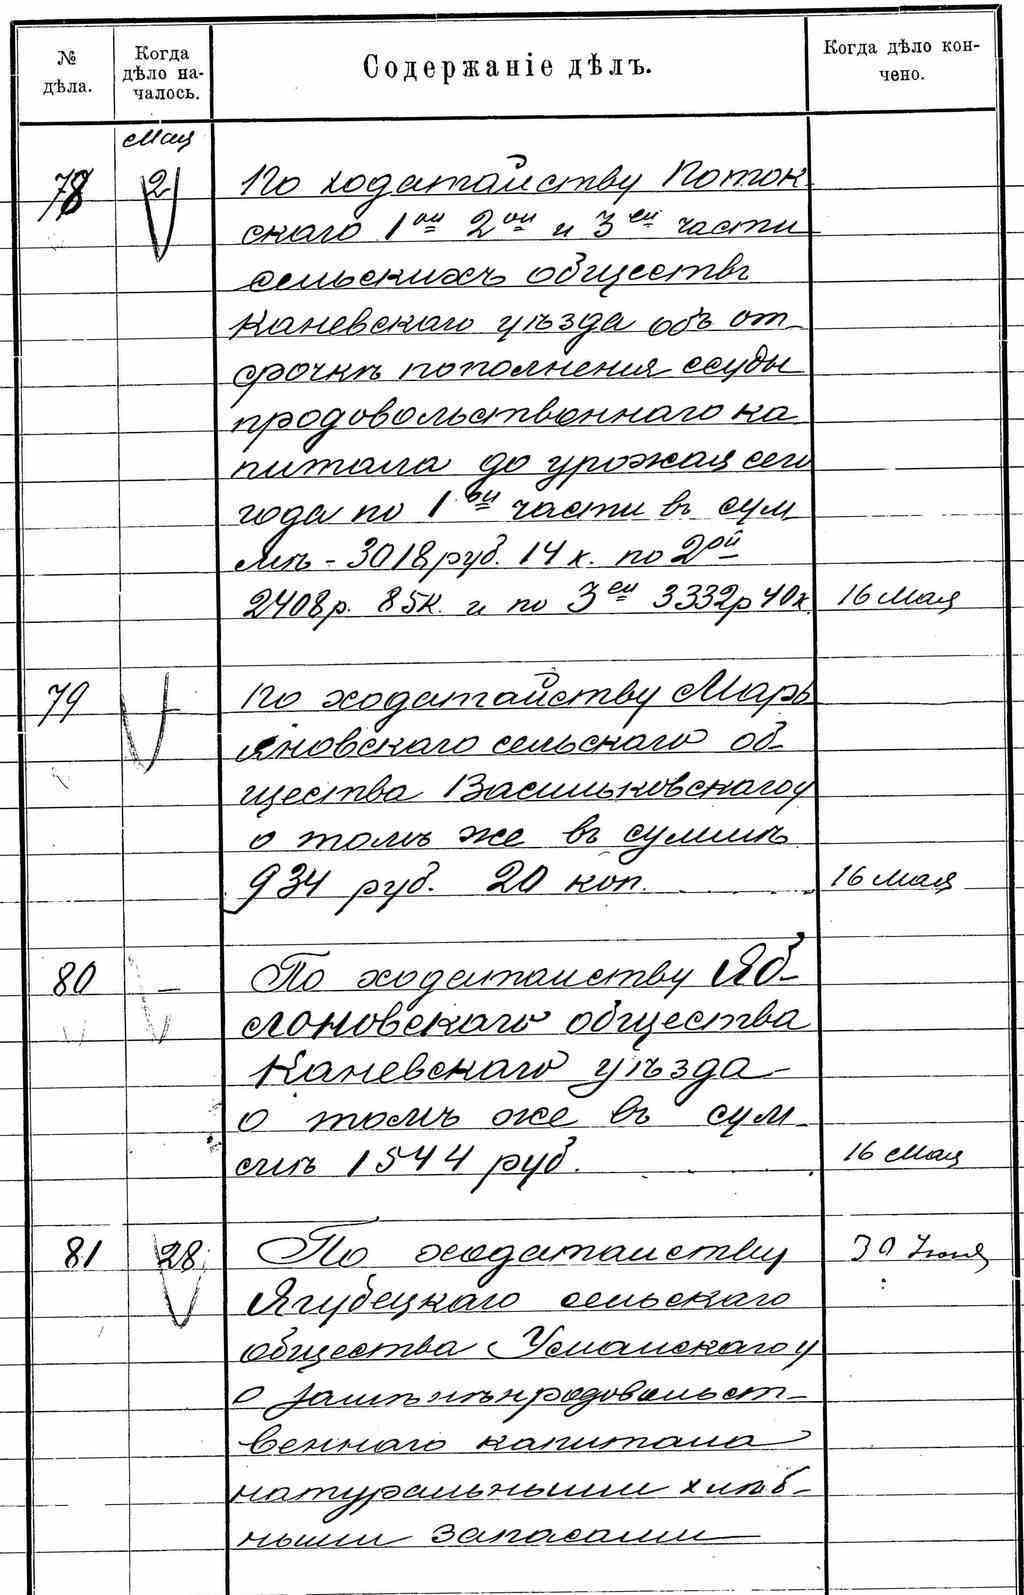 № дѣла.
Когда дѣло на-
чалось.
Содержаніе дѣлъ.
Когда дѣло кон-
чено.
Мая
78 2 По ходатайству Поток
скаго 1ой 2ой и 3ей части
сельскихъ обществъ
Каневскаго уѣзда объ от-
срочкѣ пополнения ссуды
продовольственнаго ка
питала до урожая сего
года по 1ой части въ сум
мѣ - 3018 руб. 14 к. по 2ой
2408 р. 85 к. и по 3ей 3332 р 40 к. 16 Мая
79 - По ходатайству Марь
яновскаго сельскаго об-
щества Васильковскаго у
о томъ же въ суммѣ
934 руб. 20 коп. 16 Мая
80 - По ходатаиству Яб-
лоновскаго общества
Каневскаго уѣзда
о томъ же въ сум-
мѣ 1544 руб. 16 Мая
81 28 По ходатаиству 30 Июня
Ягубецкаго сельскаго
общества Уманскаго у
о замѣнѣ продовольст-
веннаго капитала
натуральными хлѣб-
ными запасами